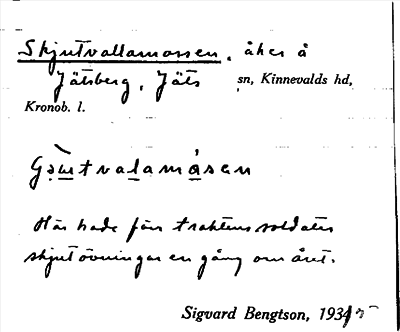 Skjutvallamossen, åker å
Jätsberg, Jäts sn, Kinnevalds hd,
Kronob. l.
Här hade förr traktens soldater
skjutövningar en gång om året.
Sigvard Bengtson, 1935